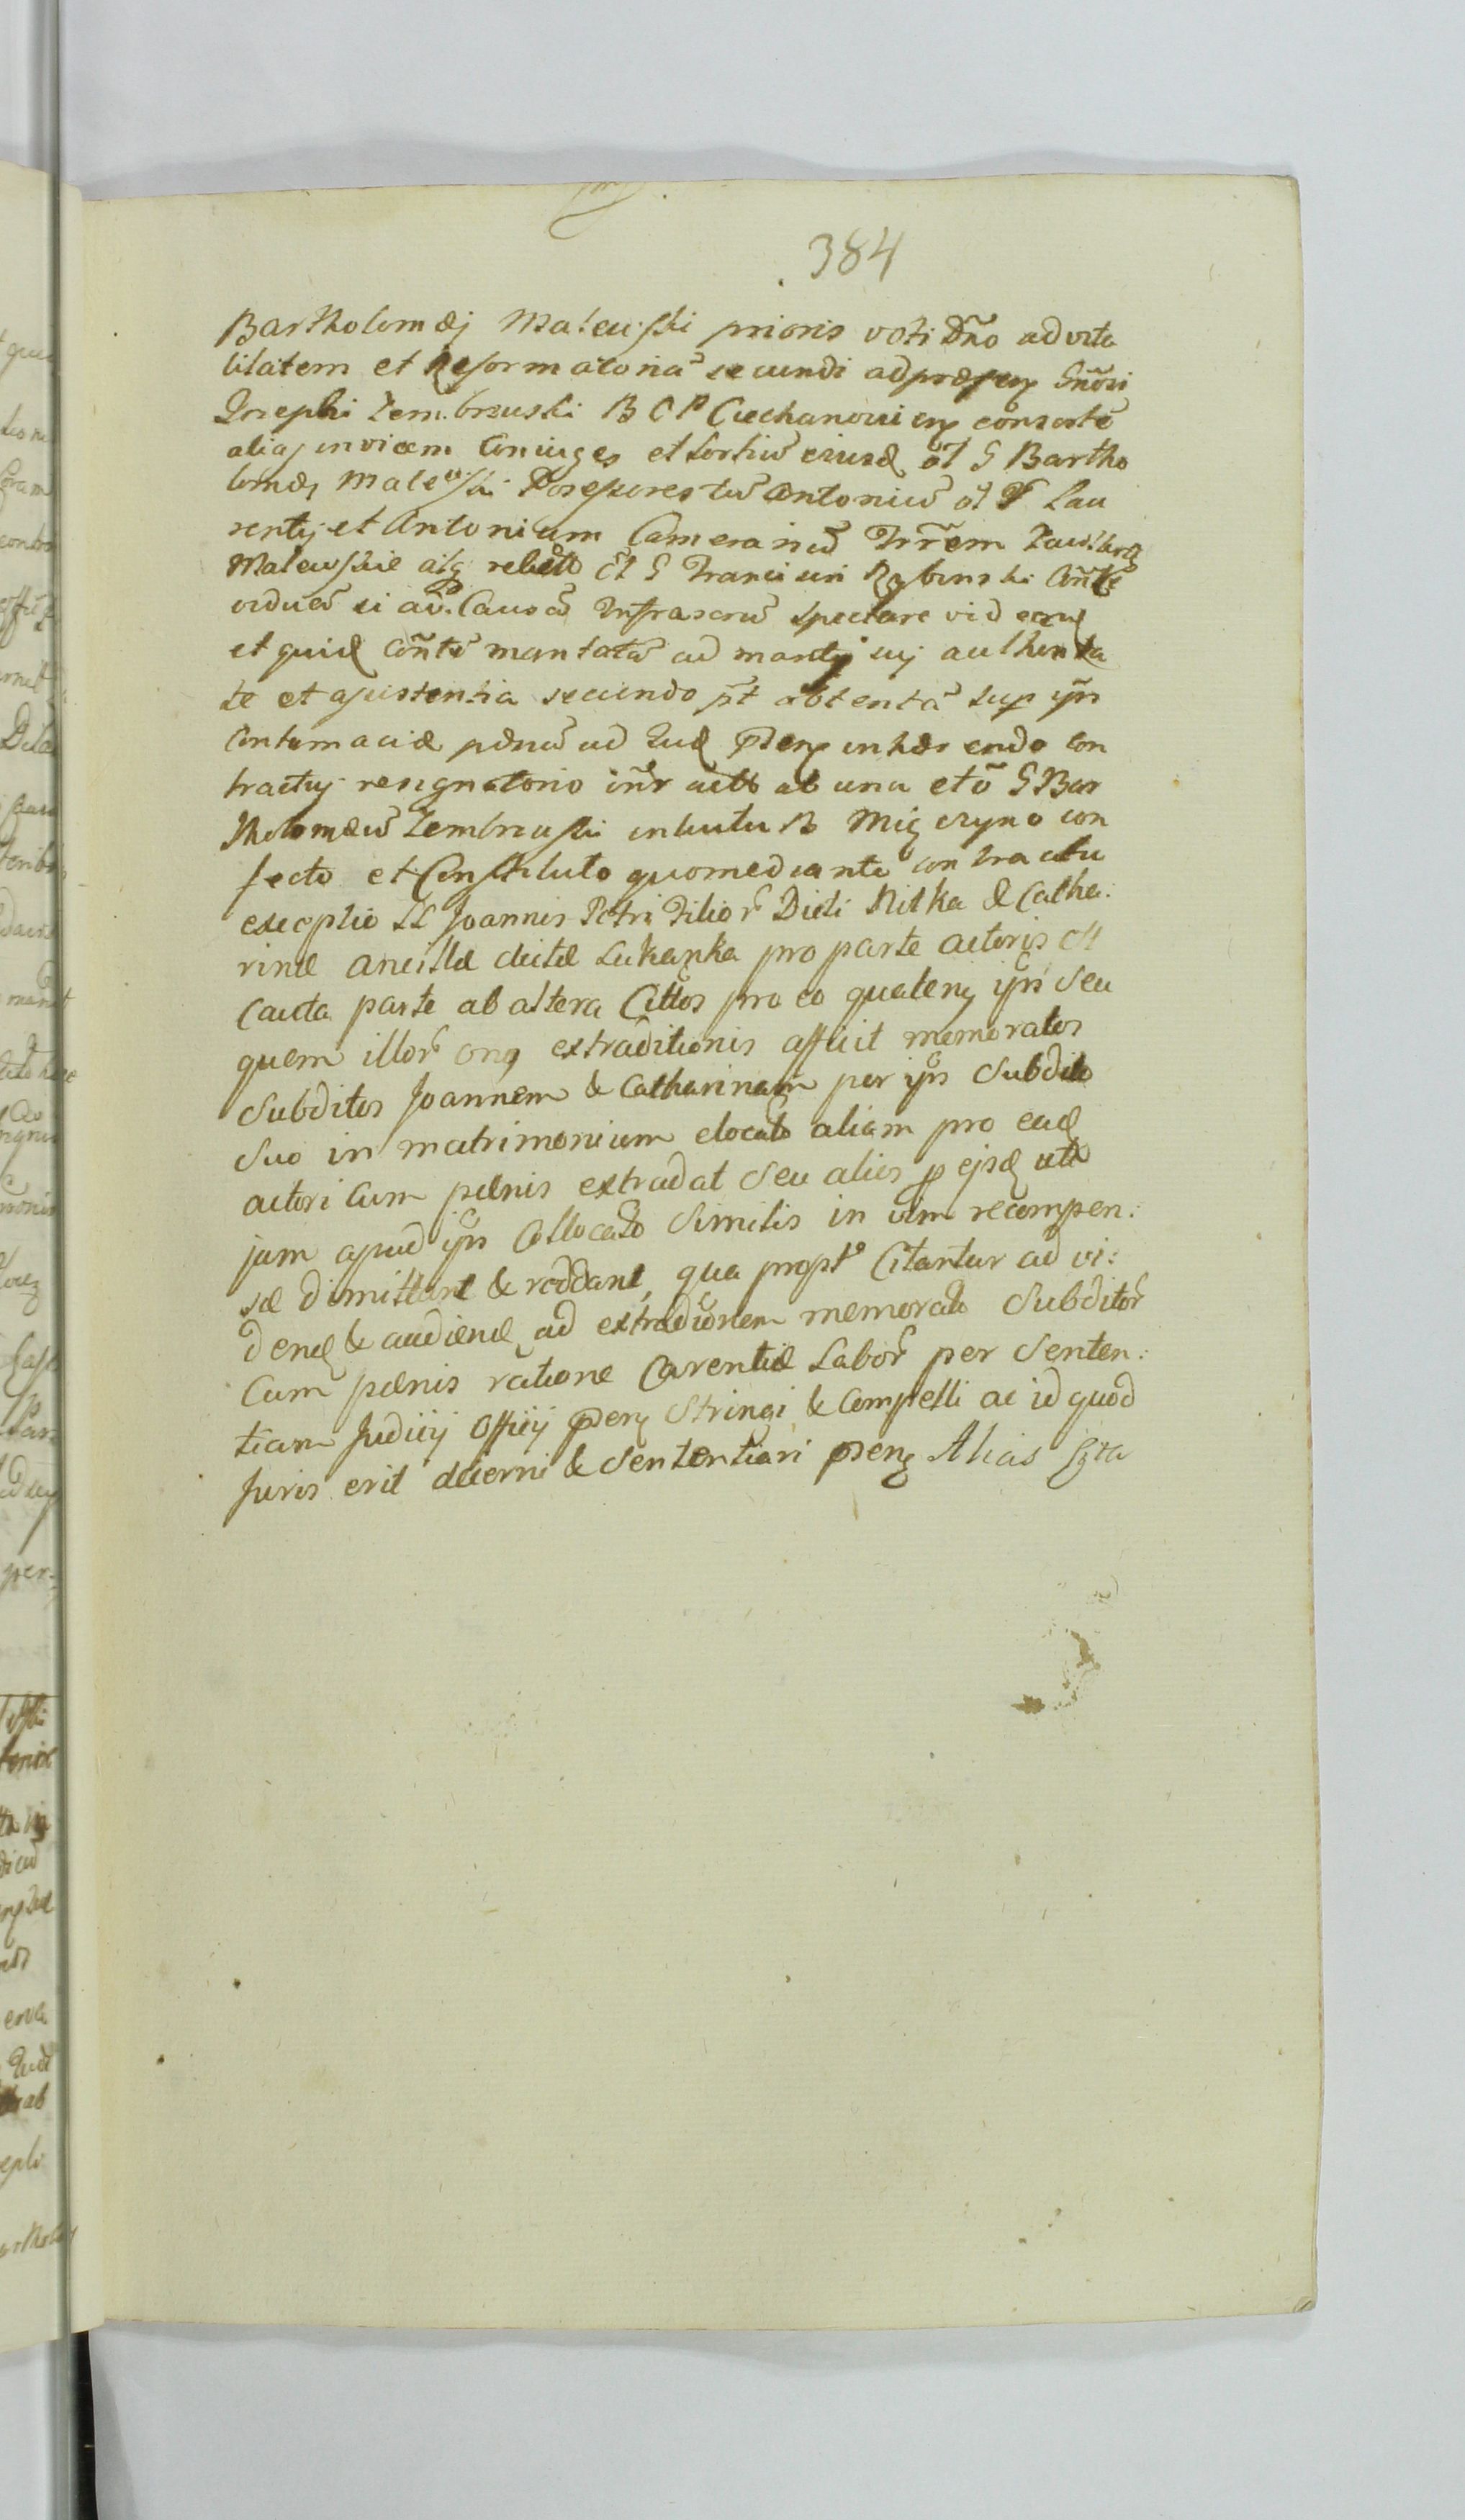 384
Bartholomæi Malewski prioris voti Dño advita
litatem et Reformatoria secundi ad præsens Gñosi
Josephi Zembrzuski B C P Ciechanovien consorte
aliaς invicem Coniuges et Sortiu eiusd ol G Bartho
lomæi Malewski Possessores tu Antoniu ol G Lau
rentij et Antonium Camerariu Trrem Zawskrz
Malewskie atq relicto Et G Francisci Rębinski
viduã si ad Causã Infrascriu spectare vid
et quid Cõnte mantata ad mariti sui authenta
te et assistentia secundo pt obtenta sup ipsis
Contumaciæ pænis ad Jud pñens inhærendo Con
tractuj resignatorio intr actor ab una et o G Bar
tholomæu Zembrzuski intuitu B Migczyno con
fecto et Constituto quo mediante contractu
exceptio LL Joannis Petri Filior Dicti Nitka & Catha:
rinæ ancillæ dictæ Lukaπka pro parte actoris est
Cauta parte ab altera Cittos pro eo quatenς ipsi Seu
quem illor onς extraditionis afficit memoratos
Subditos Joannem & Catharinam per ipsos Subdito
Suo in matrimonium elocato aliam pro ead
actori Cum pænis extradat Seu alios p ejsd uti
jam apud ipsos Collocato Similis in vim recompen:
sæ dimittant & reddant, qua propt Citantur ad vi:
dend & audiend ad extraditionem memorato Subditor
Cum pænis ratione Carentiæ Labor per Senten:
tiam Judicij Officij psens Stringi & Compelli ac id quod
Juris erit decerni & Sententiari psens Alias